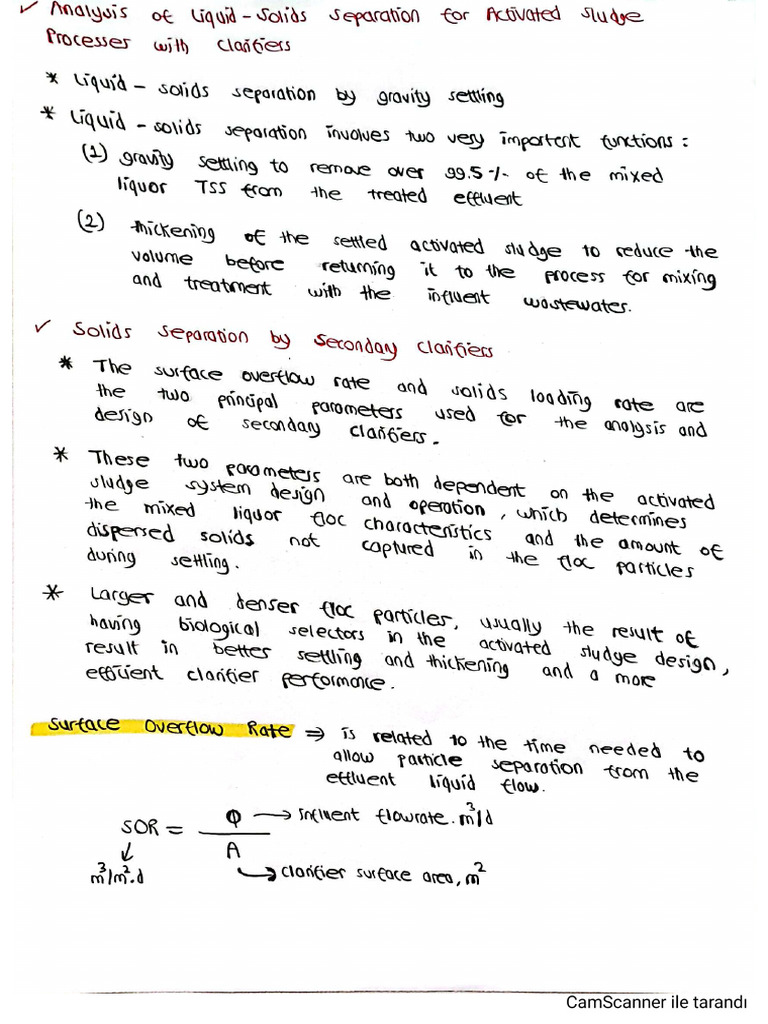 ✓ Analysis of Liquid-Solids Separation for Activated Sludge
Processes with Clarifiers
* Liquid - solids separation by gravity settling
* Liquid - solids separation involves two very important functions :
(1) gravity settling to remove over 99.5 % of the mixed
liquor TSS from the treated effluent
(2) thickening of the settled activated sludge to reduce the
volume before returning it to the process for mixing
and treatment with the influent wastewaters.
✓ Solids Separation by Seconday Clarifiers
* The surface overflow rate and solids loading rate are
the two principal parameters used for the analysis and
design of seconday clarifiers.
* These two parameters are both dependent on the activated
sludge system design and operation, which determines
the mixed liquor floc characteristics and the amount of
dispersed solids not captured in the floc particles
during settling.
* Larger and denser floc particles, usually the result of
having biological selectors in the activated sludge design,
result in better settling and thickening and a more
efficient clarifier performance.
Surface Overflow Rate ⇒ is related to the time needed to
allow particle separation from the
effluent liquid flow.
SOR = Q → Influent flowrate. m³/d
A
m³/m².d → clarifier surface area, m²
CamScanner ile tarandı